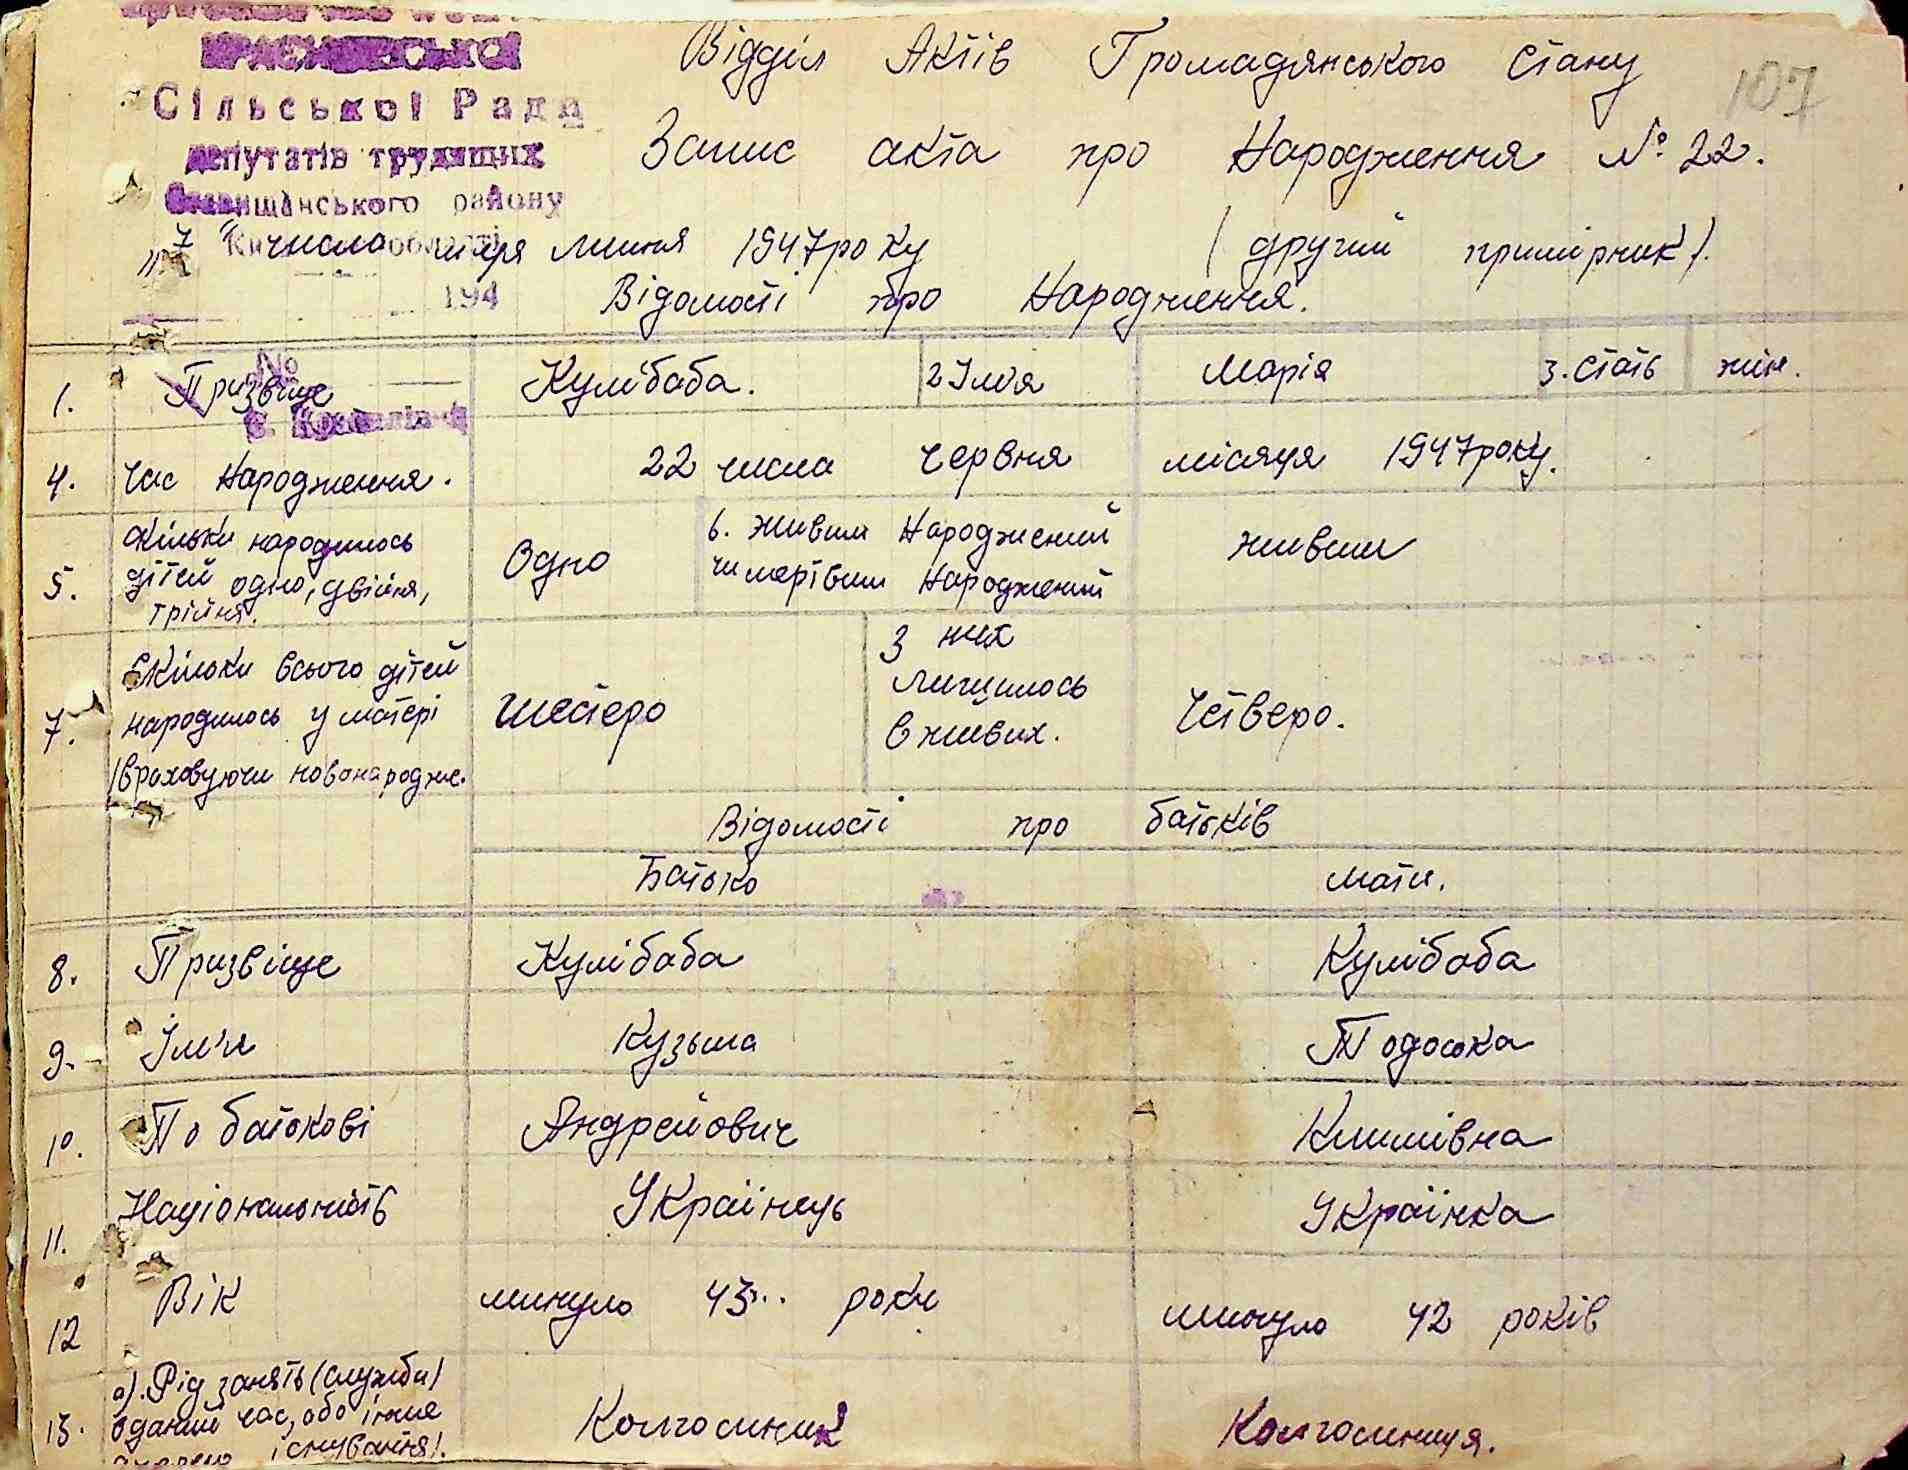 Сільської Ради
депутатів трудящих
Ставищанського району
Відділ Актів Громадянського Стану
107
Запис акта про Народження № 22.
"7" числа м-ця липня 1947 року (другий примірник).
194
Відомості про Народження.
1. Призвіще Кулібаба. 2 Ім'я Марія 3. Стать жін.
№
4. Час Народження. 22 числа Червня місяця 1947 року.
5. Скільки народилось дітей одно, двійня, трійня. Одно 6. Живим Народжений чи мертвим Народжений живим
7. Скільки всього дітей народилось у матері (враховуючи новонародже. шестеро З них лишилось в живих. Четверо.
Відомості про батьків
Батько Мати.
8. Призвіще Кулібаба Кулібаба
9. Ім'я Кузьма Тодоска
10. По батькові Андрейович Климівна
11. Національність Українець Українка
12 Вік минуло 43 роки минуло 42 років
13. а). Рід занять (служби) в даний час, або інше існування). Колгоспник Колгоспниця.